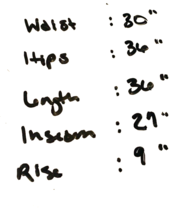 Waist : 30"
Hips : 36"
Length : 36"
Inseam : 27"
Rise : 9"